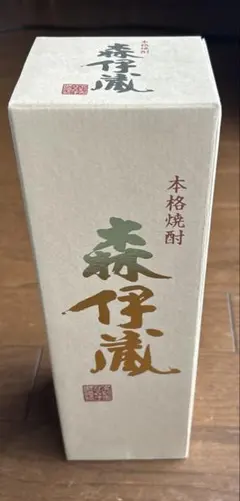 本格焼酎
森伊蔵
本格焼酎
森伊蔵